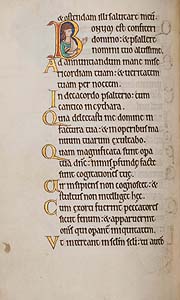 & ostendam illi salutare meū.
Bonum est confiteri
domino: & psallere
nomini tuo altissime.
Ad annuntiandum mane mise
ricordiam tuam: & ueritatem
tuam per noctem.
In decacordo psalterio: cum
cantico in cythara.
Quia delectasti me domine in
factura tua: & in operibus ma
nuum tuarum exultabo.
Quam magnificata sunt ope
ra tua dn̄e: nimis pfunde facte
sunt cogitationes tue.
Uir insipiens non cognoscet: &
stultus non intelliget hec.
Cum exorti fuerint peccatores
sicut fenum: & apparuerint
omnes qui operant̄ iniquitatem.
Ut intereant in sclm scli: tu aute